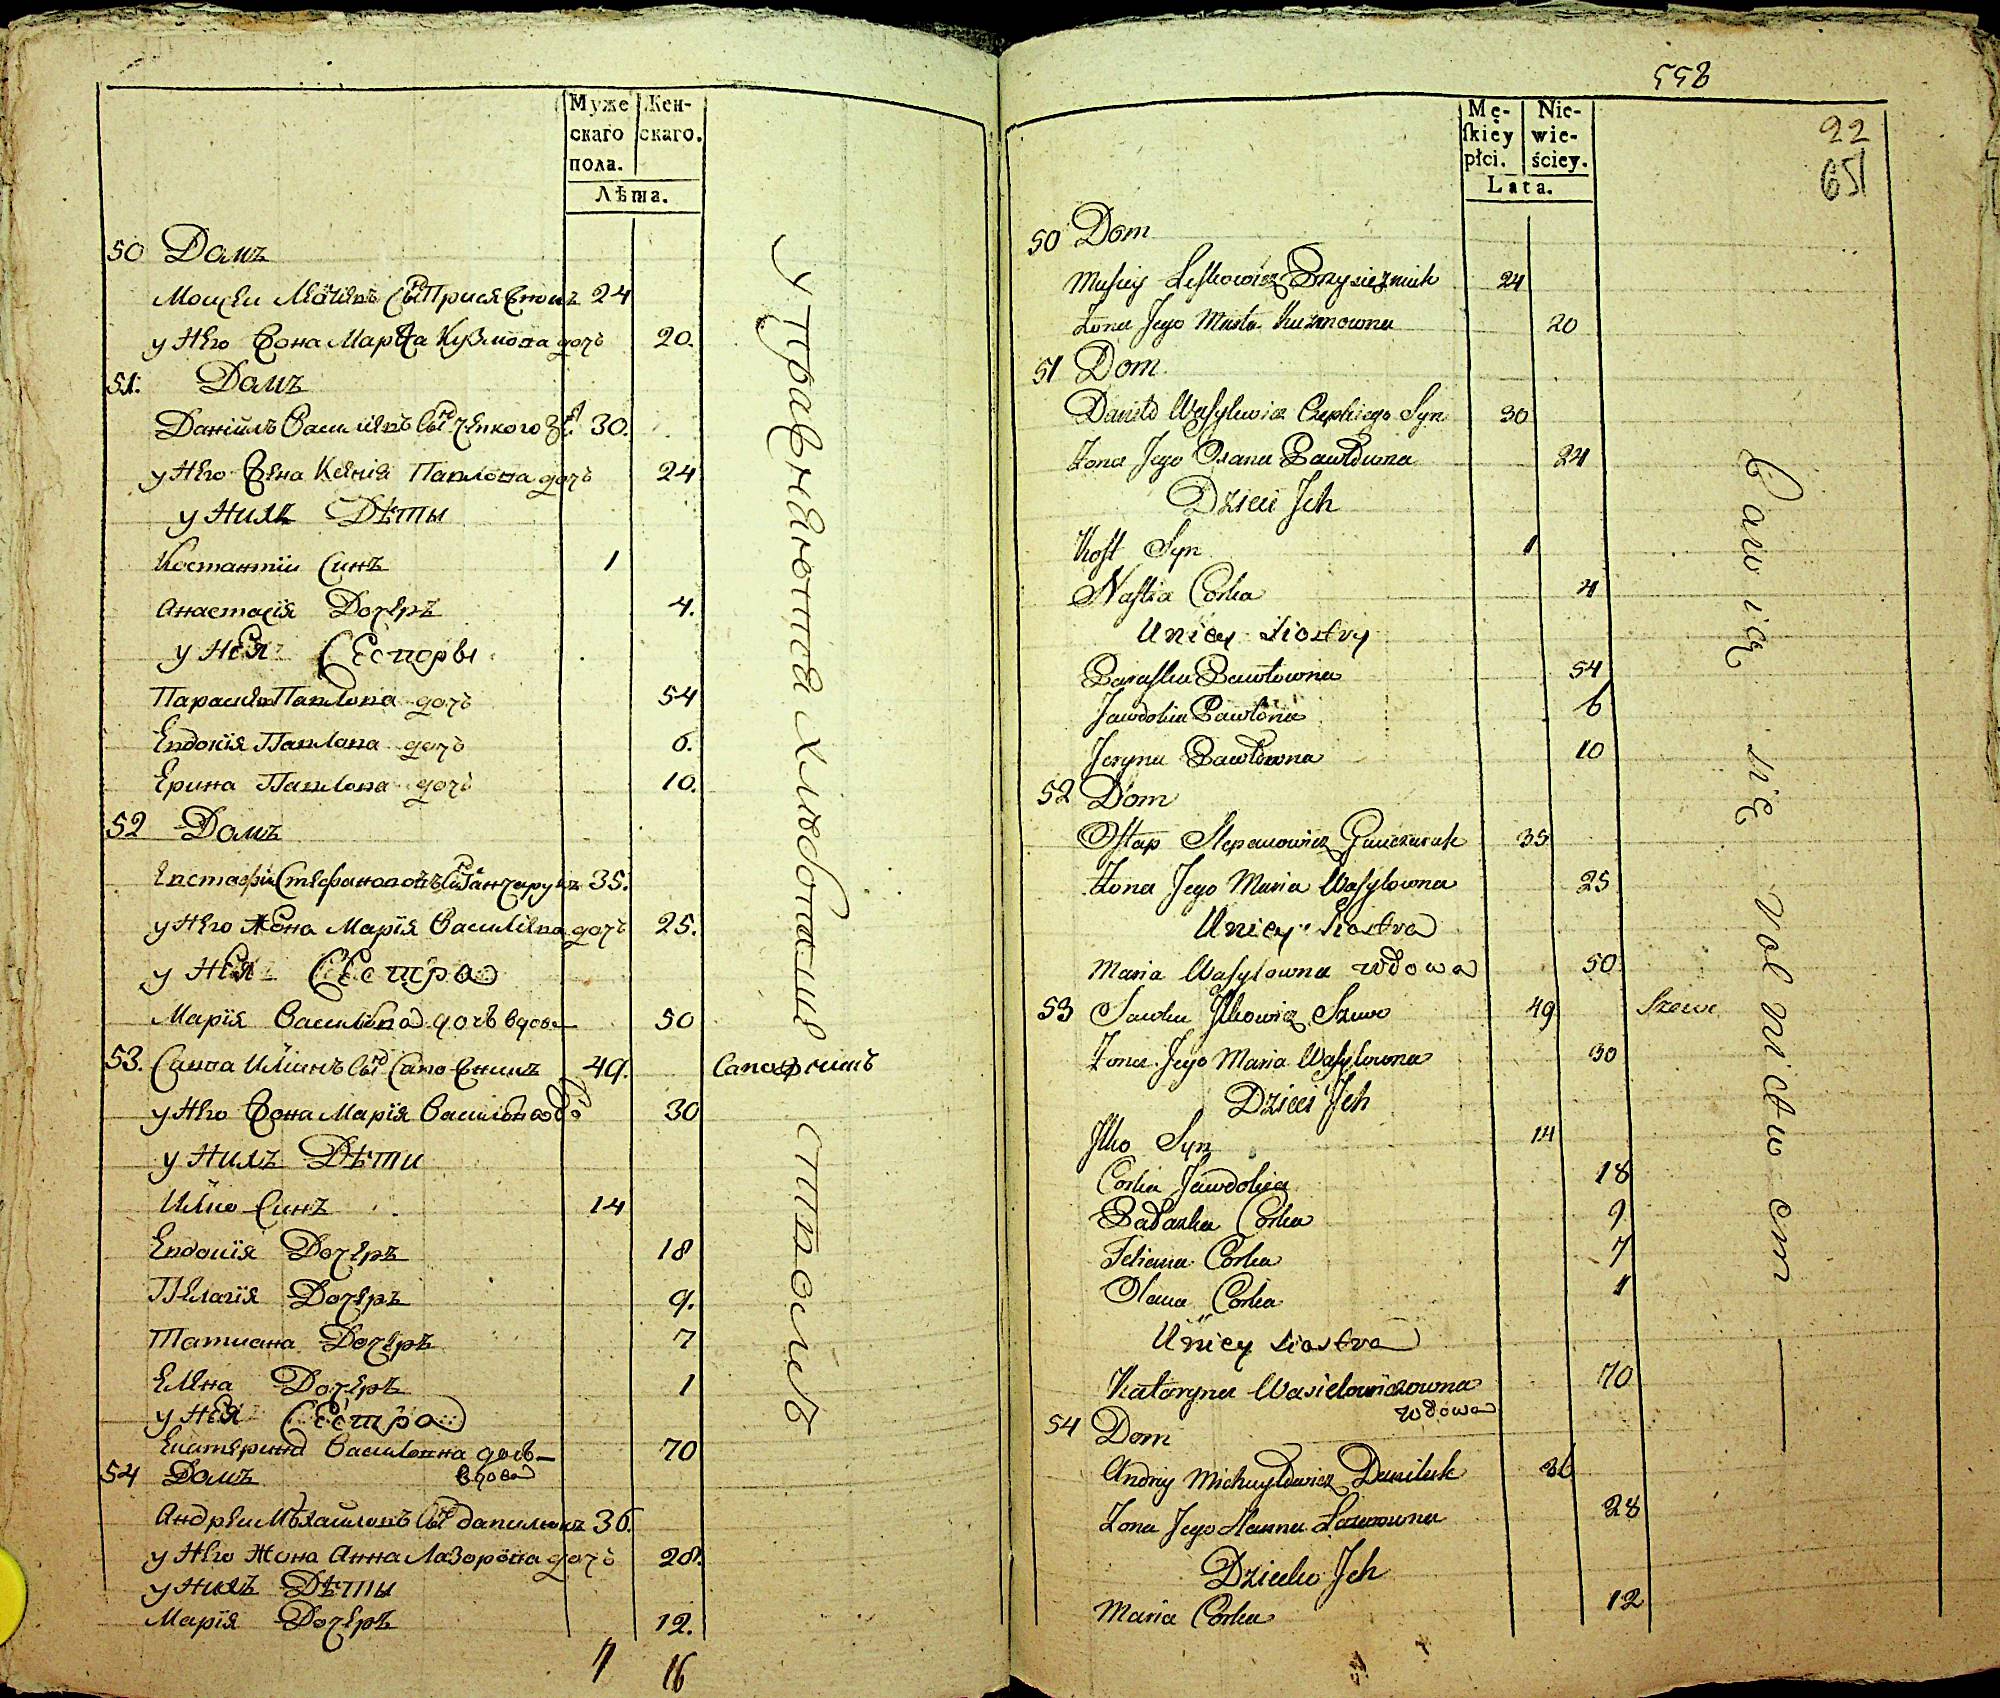 Муже
скаго
пола.
Жен-
скаго.
Лѣта.
50 Домъ
24
у Него Жона Марѳа Кузмова дочь 20.
51. Домъ
Данiилъ Василiевъ сынъ 30.
у Него Жена Ксенiя Павлова дочь 24
у Нихъ Дѣты
Костантiи Синъ 1
Анастасiя Дочеръ 4.
у Нея Сесторы
Параскевiя Павлова дочь 54
Евдокiя Павлова дочь 6.
Ерина Павлова дочь 10.
52 Домъ
Евстафiи Стефановъ сынъ Ганчарукъ 35.
у Него Жона Марiя Василiева дочь 25.
у Нея Сестра
Марiя Василiева дочь вдова 50
53. Савва Илiинъ сынъ Сапожникъ 49. Сапожникъ
у Него Жона Марiя Василева до 30
у Нихъ Дѣти
Илко Синъ 14
Евдокiя Дочеръ 18
Пелагiя Дочеръ 9.
Татиана Дочеръ 7
Елена Дочеръ 1
у Нея Сестра
Екатерина Василовна дочь 70
вдова
54 Домъ
Андреи Михаиловъ сынъ данилюкъ 36.
у Него Жона Анна Лазорова дочь 28.
у Нихъ Дѣты
Марiя Дочеръ 12.
7 16
Упражнѧются хлѣбопашествомъ
558
22
651
Mę-
ſkiey
płci.
Nie-
wie-
ściey.
Lata.
50 Dom
Musiy Leskowicz Przysiężnik 24
Żona Jego Marta Kuzmowna 20
51 Dom
Daniło Wasylewicz Czepkiego Syn 30
Żona Jego Oxana Pawłowna 24
Dzieci Jch
Kost Syn 1
Nastia Corka 4
U niey siostry
Paraska Pawłowna 54
Jawdokia Pawłowna 6
Jeryna Pawłowna 10
52 Dom
Ostap Stepanowicz Ganczaruk 35
Żona Jego Maria Wasylowna 25
U niey siostra
Maria Wasylowna wdowa 50
53 Sawka Jlkowicz Szewc 49 Szewc
Żona Jego Maria Wasylowna 30
Dzieci Jch
Jlko Syn 14
Corka Jawdokia 18
Palaszka Corka 9
Tetiana Corka 7
Olena Corka 1
U niey siostra
Kataryna Wasielowiczowna 70
wdowa
54 Dom
Andriy Michayłowicz Daniluk 36
Żona Jego Hanna Lazarowna 28
Dziecko Jch
Maria Corka 12
Bawią się rolnictwem